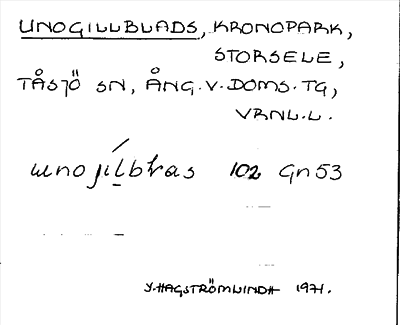 UNOGILLBLADS, KRONOPARK,
STORSELE,
TÅSJÖ SN, ÅNG.V.DOMS.TG,
VRNL.L.
102 Gn 53
Y. HAGSTRÖMLINDH 1971.